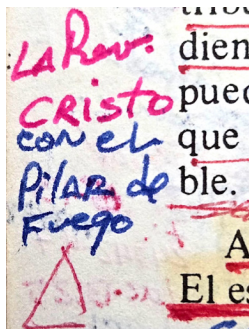 LA Rev.
CRISTO
CON EL
PilAR de
FUEgo
dien
pued
que
ble.
A
El es